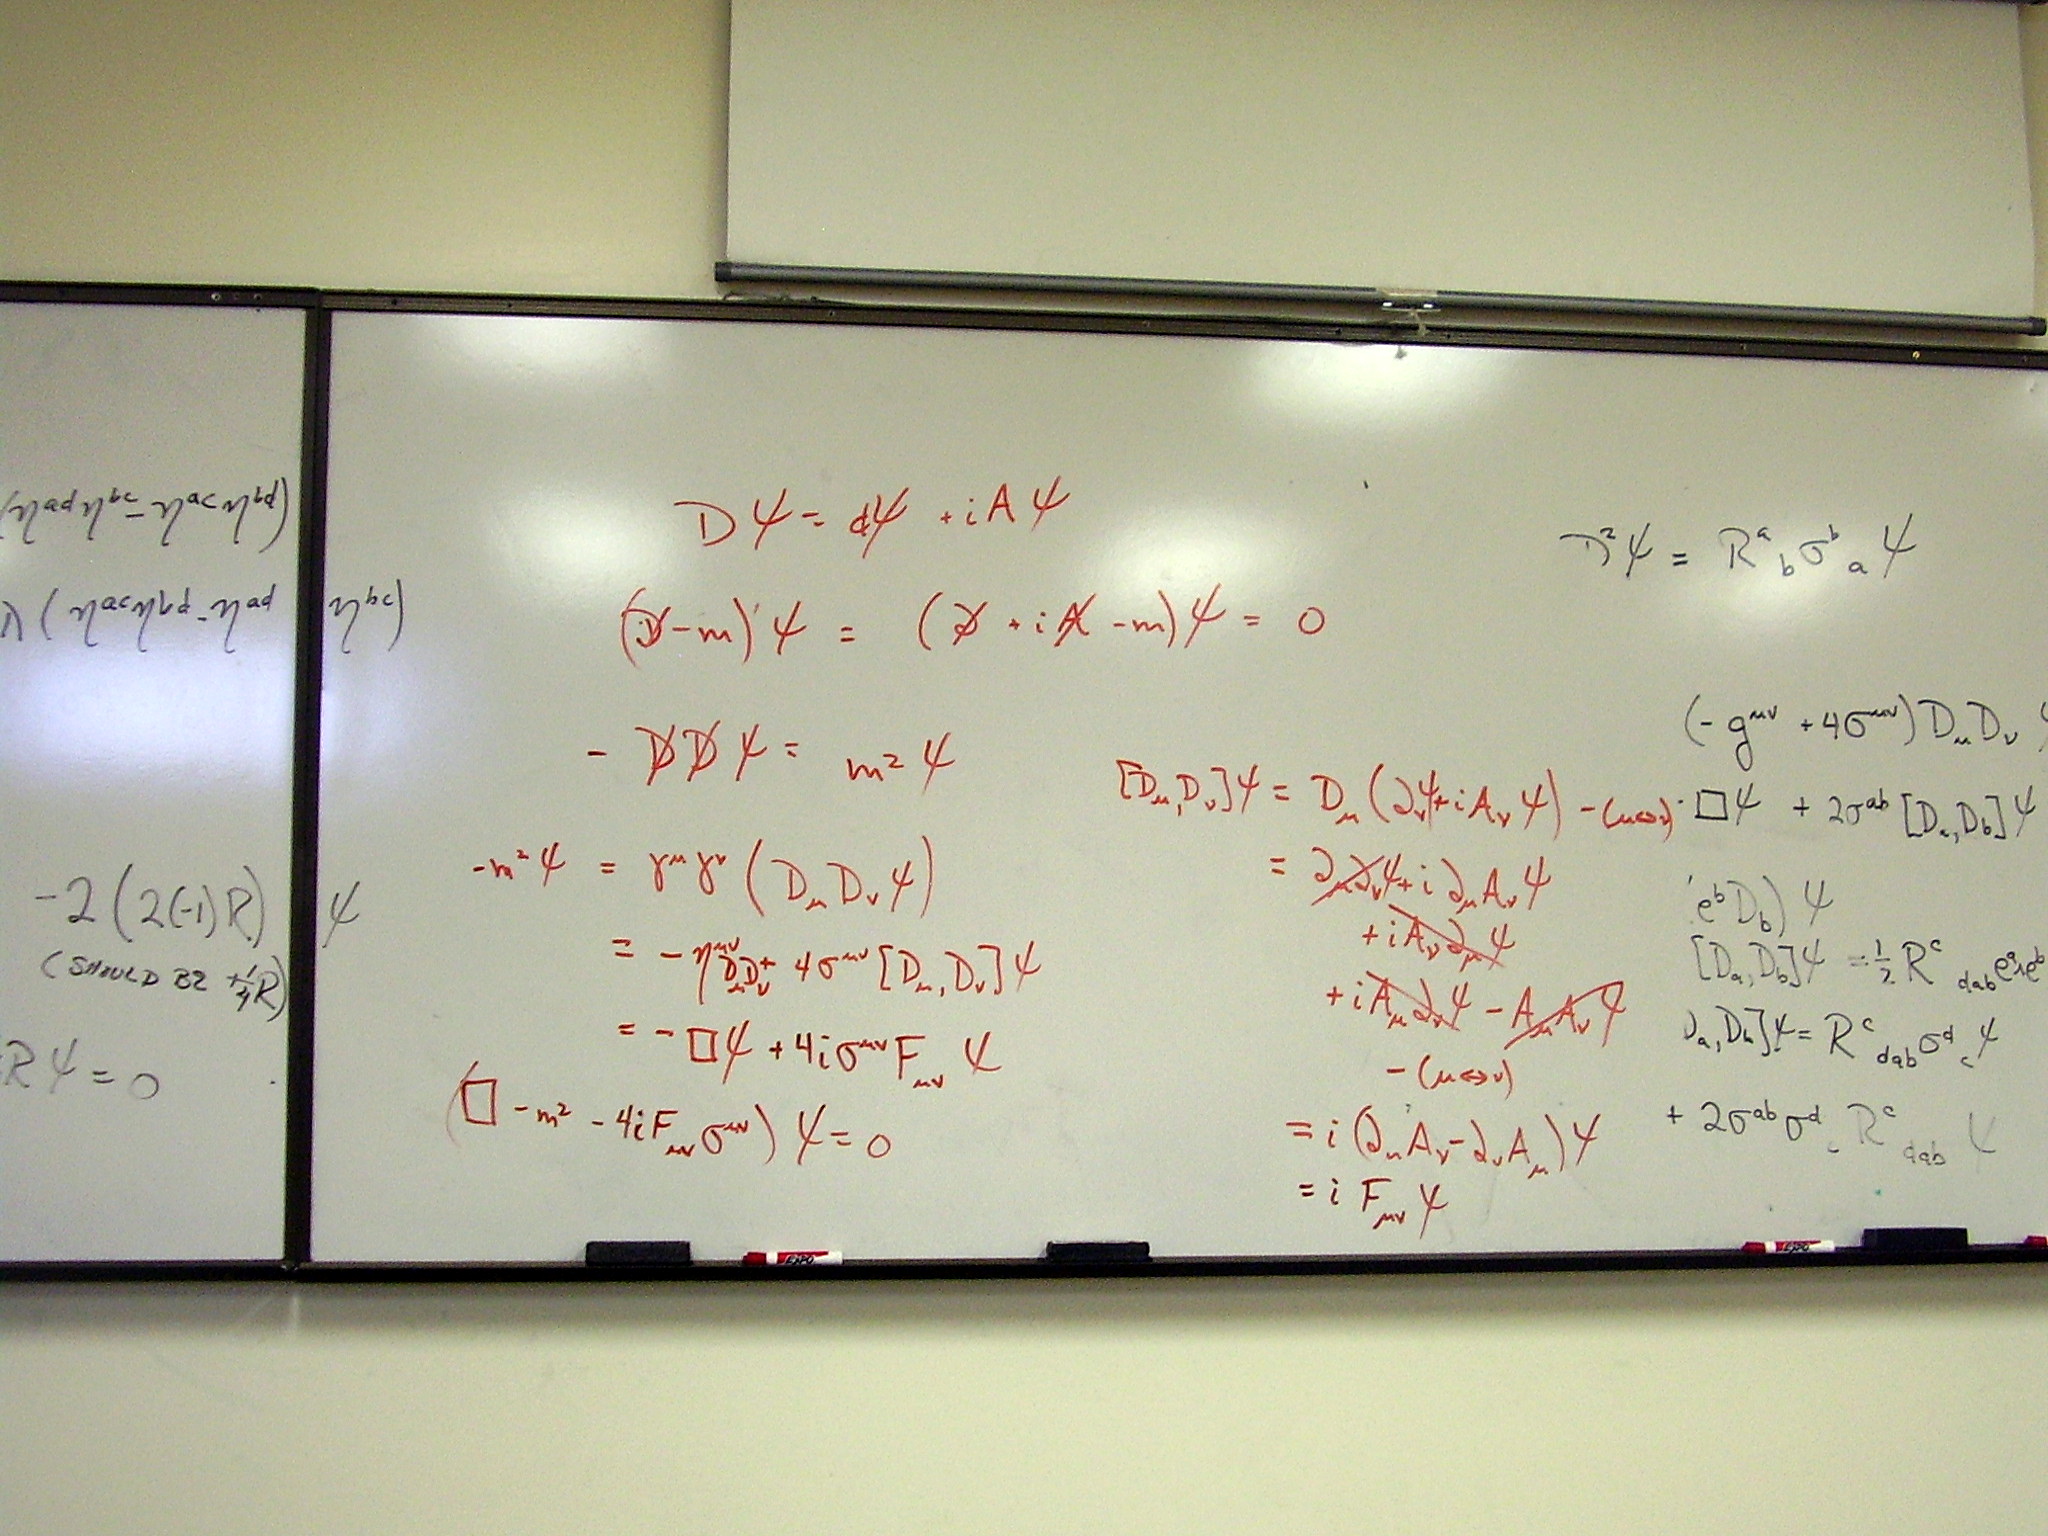 (η^{ad}η^{bc} − η^{ac}η^{bd})
(η^{ac}η^{bd} − η^{ad} η^{bc})
−2(2(−1)R) ψ
(SHOULD BE +¼R)
Rψ = 0
Dψ = dψ + iAψ
(iD̸ − m)ψ = (∂̸ + iA̸ − m)ψ = 0
− D̸D̸ψ = m²ψ
−m²ψ = γ^μγ^ν (D_μD_νψ)
= −η^{μν}D_μD_ν + 4σ^{μν}[D_μ, D_ν]ψ
= −□ψ + 4iσ^{μν}F_{μν}ψ
(□ − m² − 4iF_{μν}σ^{μν})ψ = 0
[D_μ, D_ν]ψ = D_μ(∂_νψ + iA_νψ) − (μ↔ν)
= ∂_μ∂_νψ + i∂_μA_νψ
+ iA_ν∂_μψ
+ iA_μ∂_νψ − A_μA_νψ
− (μ↔ν)
= i(∂_μA_ν − ∂_νA_μ)ψ
= iF_{μν}ψ
D²ψ = R^a_b σ^b_a ψ
(−g^{μν} + 4σ^{μν})D_μD_ν ψ
□ψ + 2σ^{ab}[D_a, D_b]ψ
e^bD_b)ψ
[D_a, D_b]ψ = ½R^c_{dab}e^a∧e^b
D_a, D_b]ψ = R^c_{dab}σ^d_cψ
+ 2σ^{ab}σ^d_c R^c_{dab} ψ
EXPO
EXPO